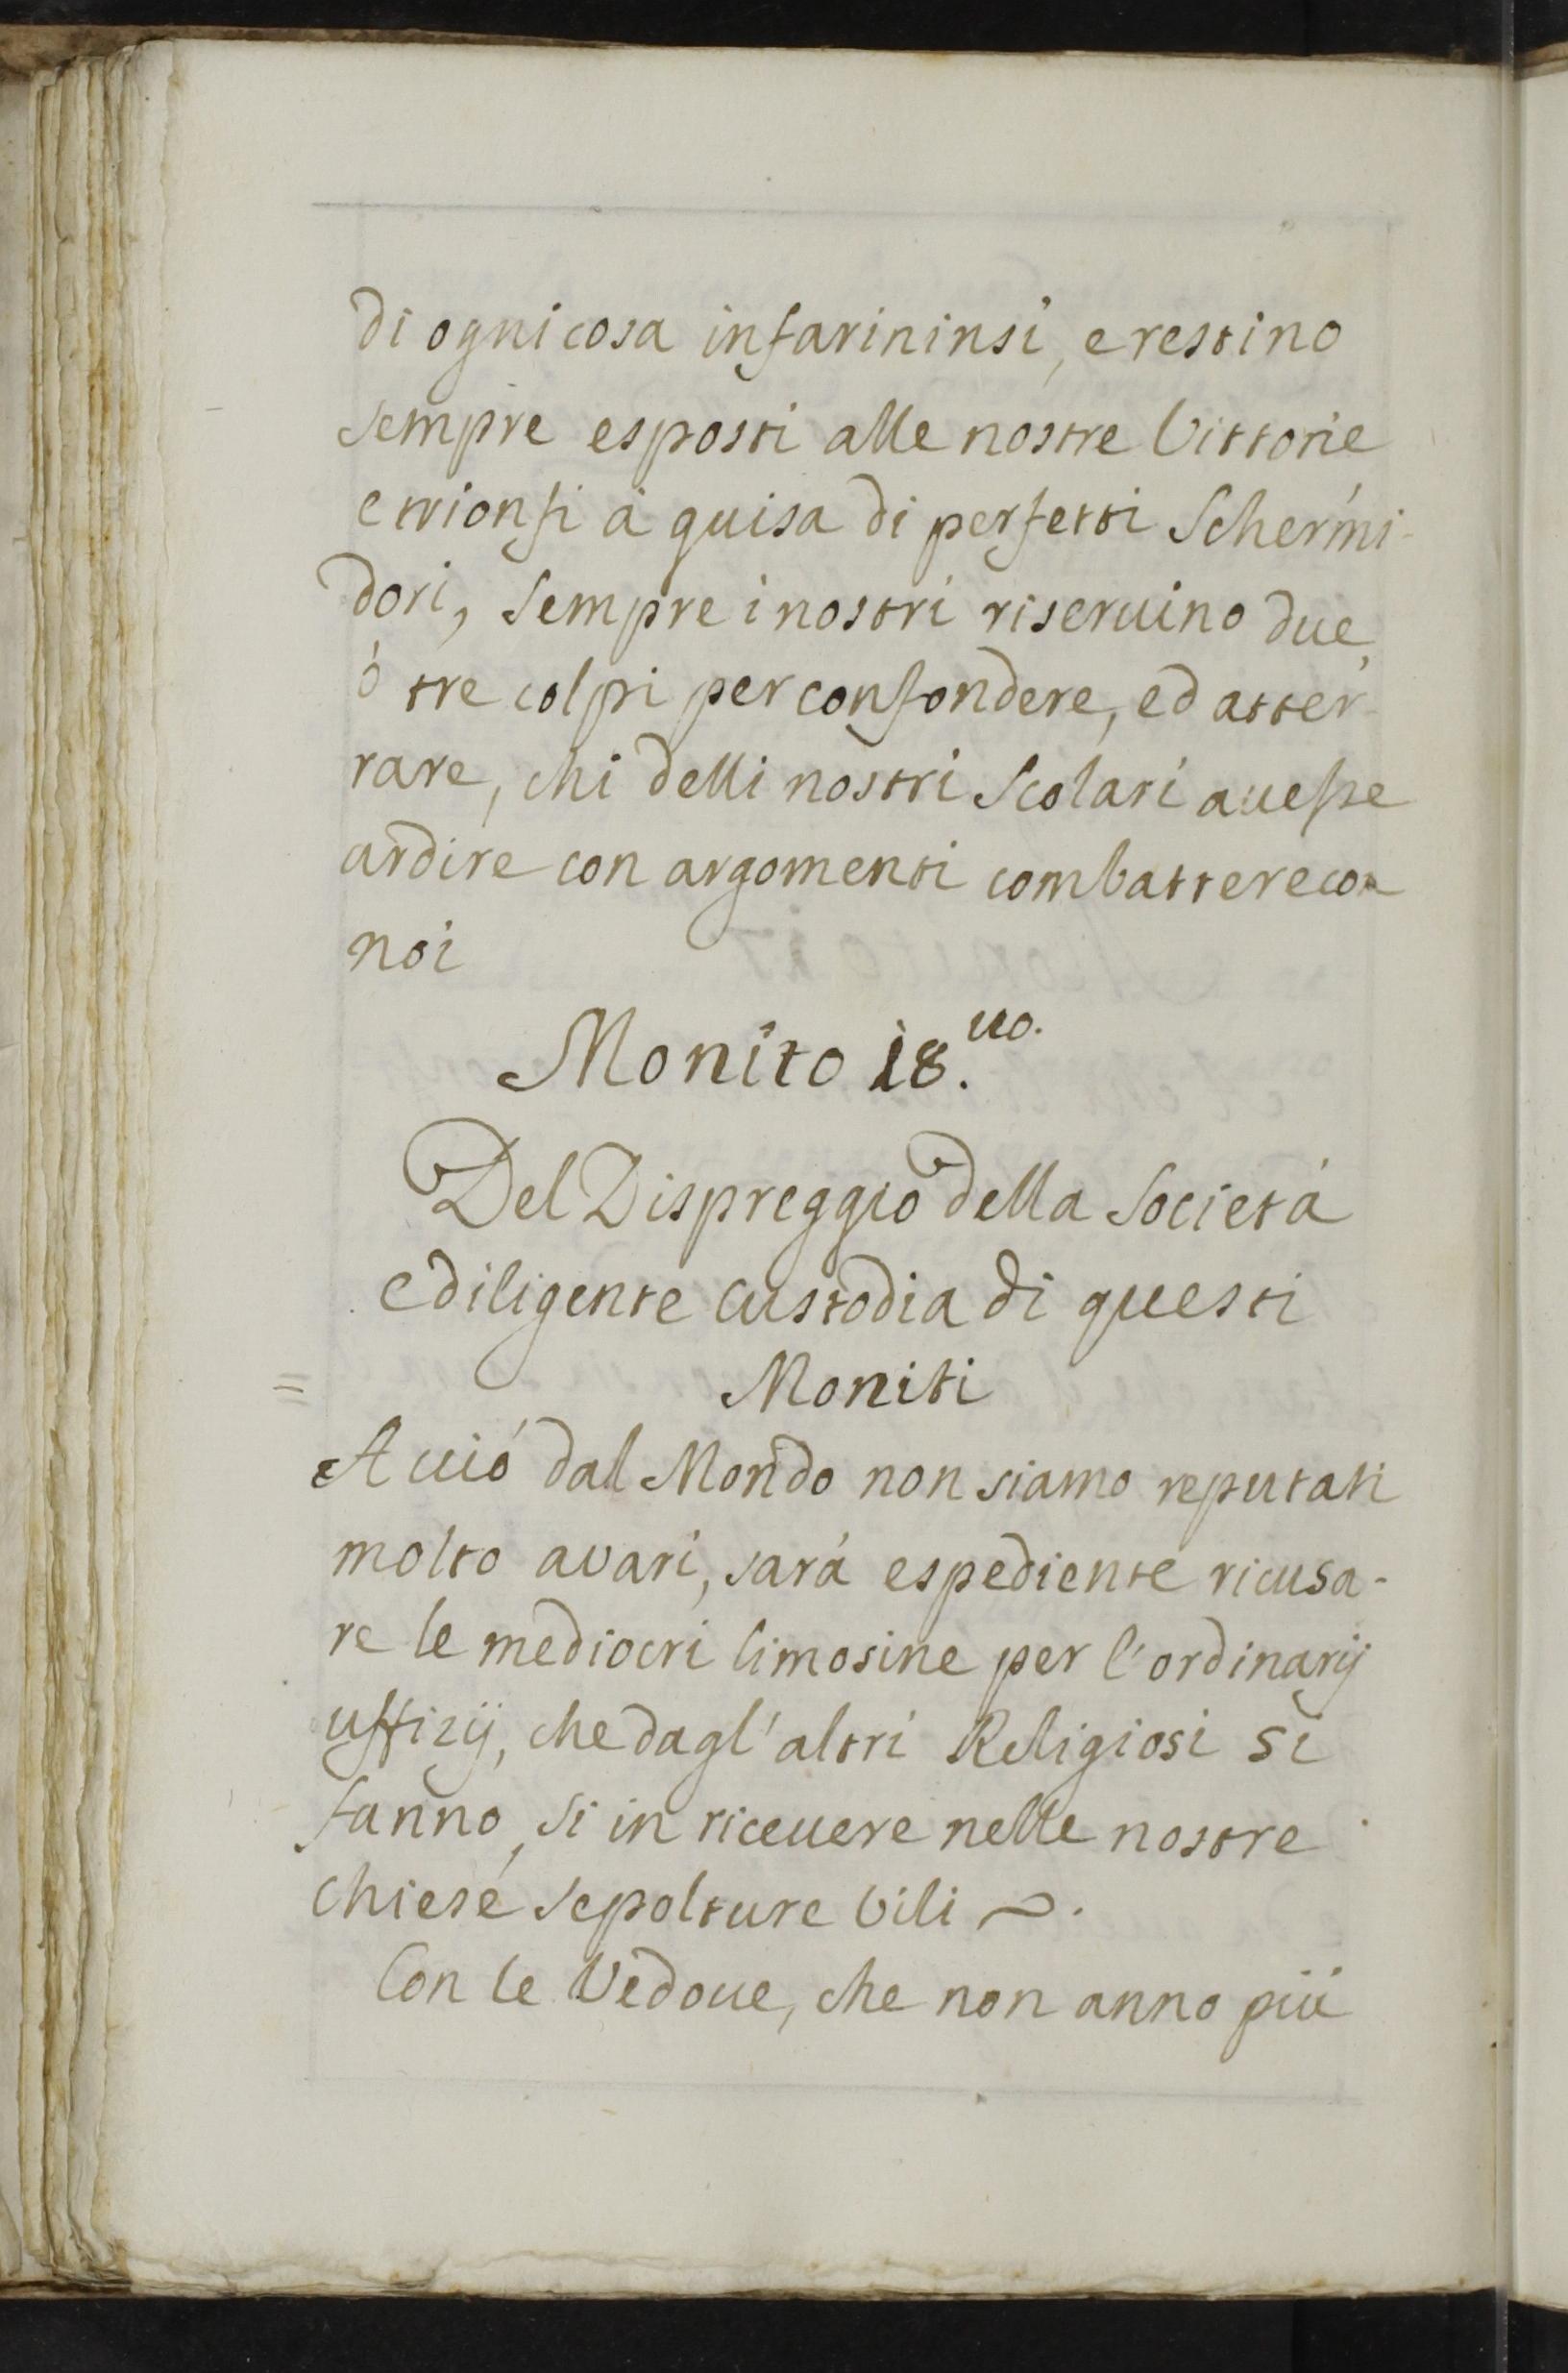 di ogni cosa infarininsi, e restino
sempre esposti alle nostre Vittorie
e trionfi à guisa di perfetti Schermi-
dori, sempre i nostri riseruino due,
ò tre colpi per confondere, ed atter-
rare, chi delli nostri Scolari auesse
ardire con argomenti combattere con
noi
Monito 18.uo.
Del Dispreggio della Società
e diligente custodia di questi
Moniti
Acciò dal Mondo non siamo reputati
molto avari, sarà espediente ricusa-
re le mediocri limosine per l'ordinarij
uffizij, che dagl'altri Religiosi si
fanno, si in riceuere nelle nostre
chiese sepolture vili ~.
Con le Vedoue, che non anno più